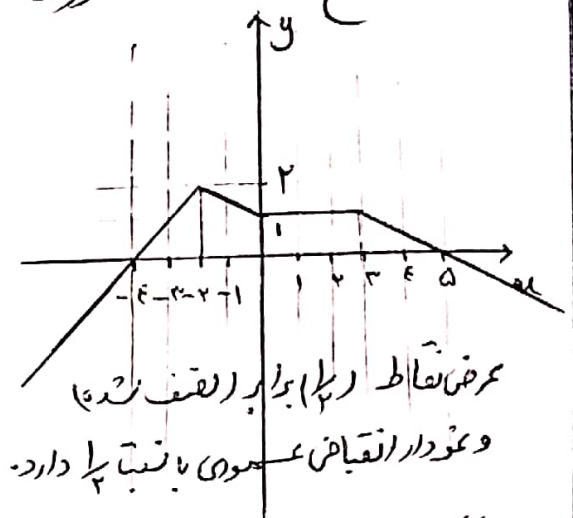 y
۲
۱
-۴ -۳ -۲ -۱ ۱ ۲ ۳ ۴ ۵ x
عرض نقاط (۱/۲) برابر (نصف شده)
و نمودار انقباض عمودی با نسبت ۱/۲ دارد.